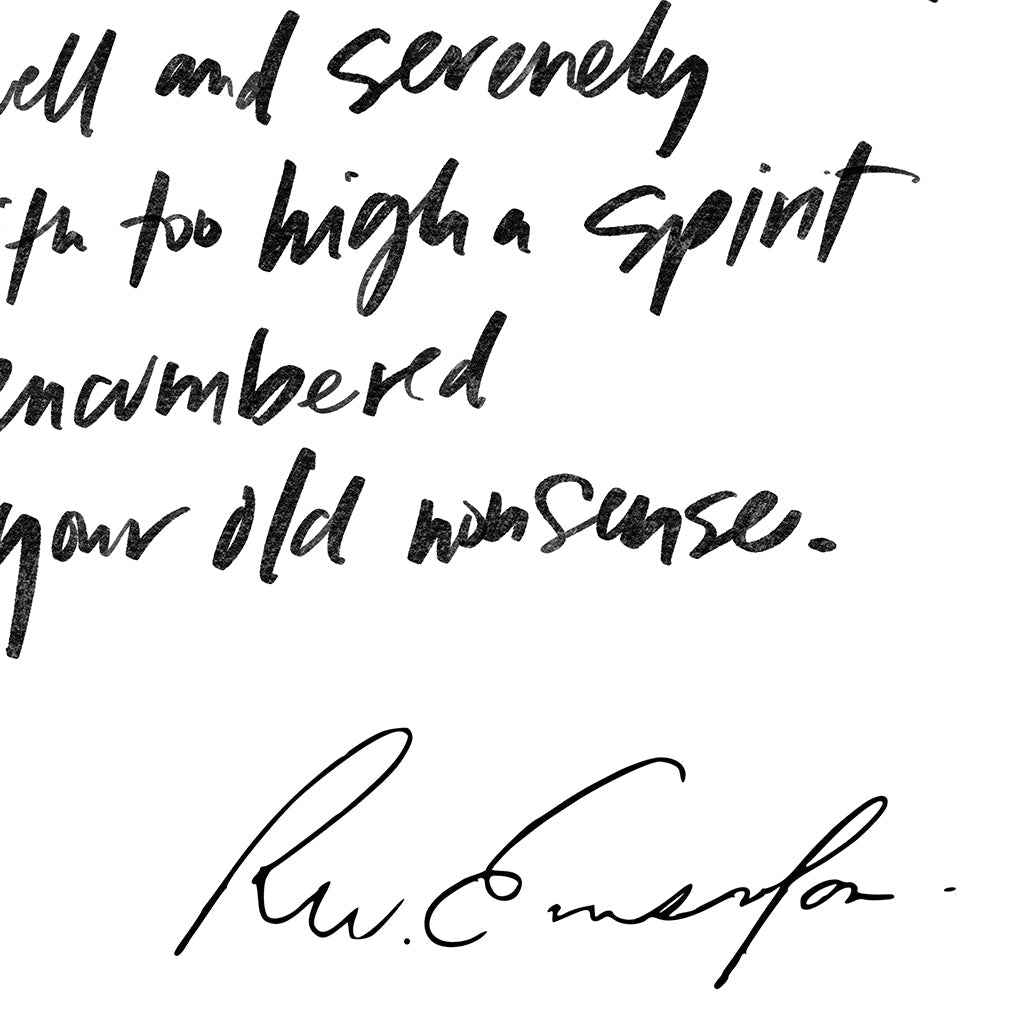 ell and serenely
ith too high a spirit
encumbered
your old nonsense.
RW. Emerson.